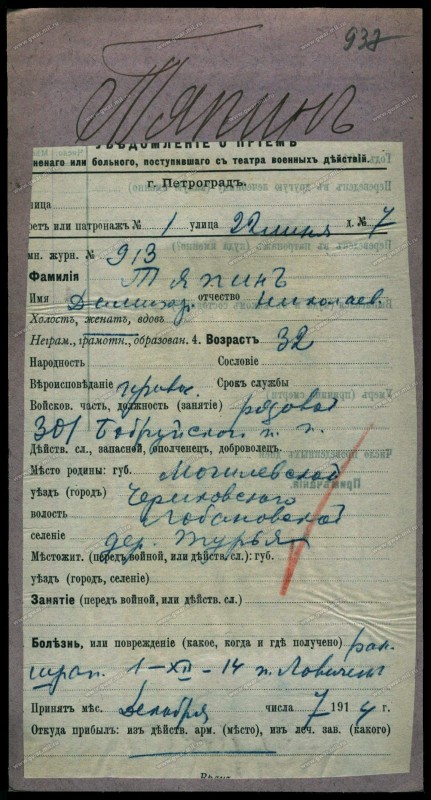 937
Тяпинъ
УВѢДОМЛЕНІЕ О ПРІЕМѢ
неннаго или больного, поступившаго съ театра военныхъ дѣйствій.
г. Петроградъ.
ница
ретъ или патронажъ № 1 улица 22 линія д. № 7
мн. журн. № 913
Фамилія Тяпинъ
Имя отчество Николаев.
Холостъ, женатъ, вдовъ
Неграм., грамотн., образован. 4. Возрастъ 32
Народность Сословіе
Вѣроисповѣданіе Срокъ службы
Войсков. часть, должность (занятіе) рядовой
301 Бобруйскаго п. п.
Дѣйств. сл., запасной, ополченецъ, доброволецъ
Мѣсто родины: губ. Могилевской
уѣздъ (городъ) Чериковскаго
волость Лобановской
селеніе дер. Журбя
Мѣстожит. (передъ войной, или дѣйств. сл.): губ.
уѣздъ (городъ, селеніе)
Занятіе (передъ войной, или дѣйств. сл.)
Болѣзнь, или поврежденіе (какое, когда и гдѣ получено) ран.
шрап. 1–XII–14 п. Ловичемъ
Принятъ мѣс. Декабря числа 7 1914 г.
Откуда прибылъ: изъ дѣйств. арм. (мѣсто), изъ леч. зав. (какого)
Врачъ